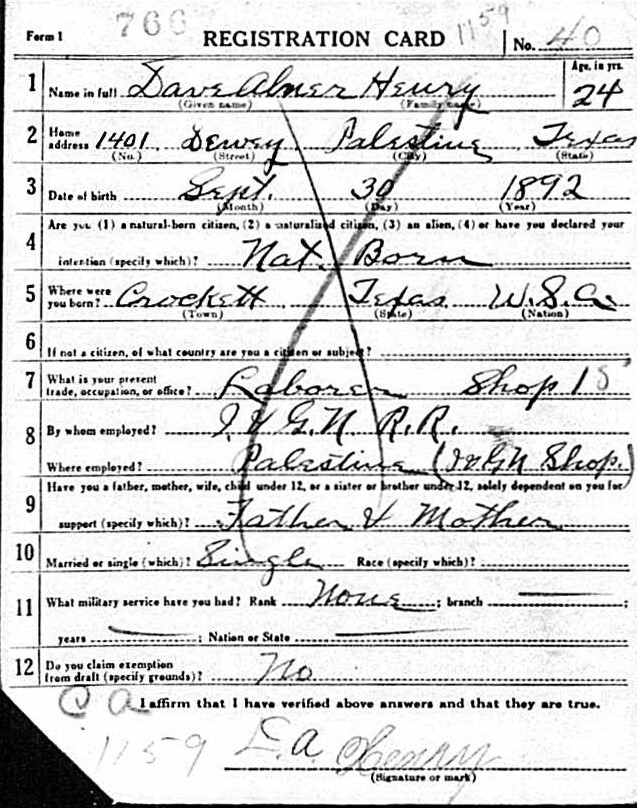 Form 1 766 REGISTRATION CARD 1159 No. 40
1 Name in full Dave Abner Henry Age, in yrs. 24
(Given name) (Family name)
2 Home address 1401 Dewey Palestine Texas
(No.) (Street) (City) (State)
3 Date of birth Sept. 30 1892
(Month) (Day) (Year)
4 Are you (1) a natural-born citizen, (2) a naturalized citizen, (3) an alien, (4) or have you declared your
intention (specify which)? Nat. Born
5 Where were you born? Crockett Texas U.S.A.
(Town) (State) (Nation)
6 If not a citizen, of what country are you a citizen or subject?
7 What is your present trade, occupation, or office? Laborer Shop 15
8 By whom employed? I & G.N R.R.
Where employed? Palestine (I&GN Shop.)
9 Have you a father, mother, wife, child under 12, or a sister or brother under 12, solely dependent on you for
support (specify which)? Father & Mother
10 Married or single (which)? Single Race (specify which)?
11 What military service have you had? Rank None ; branch ;
years ; Nation or State
12 Do you claim exemption from draft (specify grounds)? No
C A I affirm that I have verified above answers and that they are true.
1159 D.A Henry
(Signature or mark)